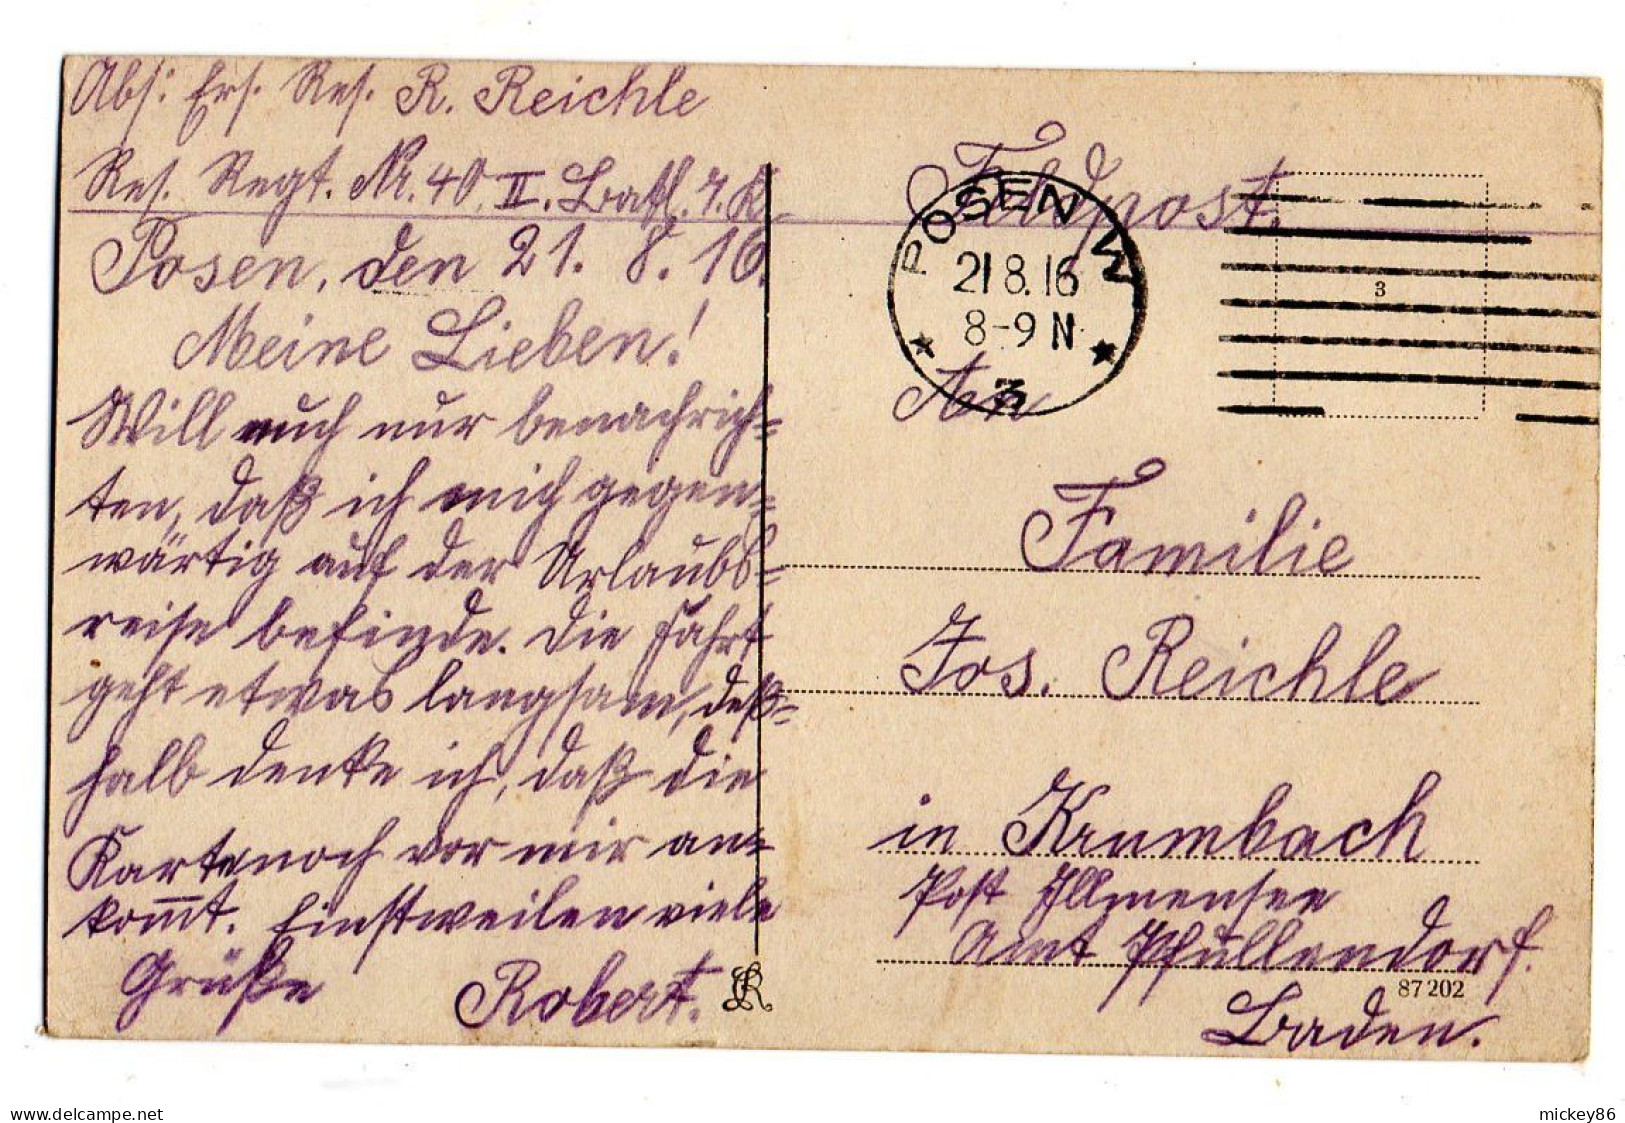 Abs: Ers. Res. R. Reichle
Res. Regt. Nr. 40, II. Batl. 7. K.
Posen, den 21. 8. 16.
Meine Lieben!
Will euch nur benachrich=
ten, daß ich mich gegen=
wärtig auf der Urlaubs=
reise befinde. Die Fahrt
geht etwas langsam, deß=
halb denke ich, daß die
Karte noch vor mir an=
kom̅t. Einstweilen viele
Grüße Robert.
Feldpost.
POSEN W
21 8. 16
8-9 N
* 3 *
3
An
Familie
Jos. Reichle
in Krumbach
Post Illmensee
Amt Pfullendorf.
87 202
Baden.
www.delcampe.net
mickey86